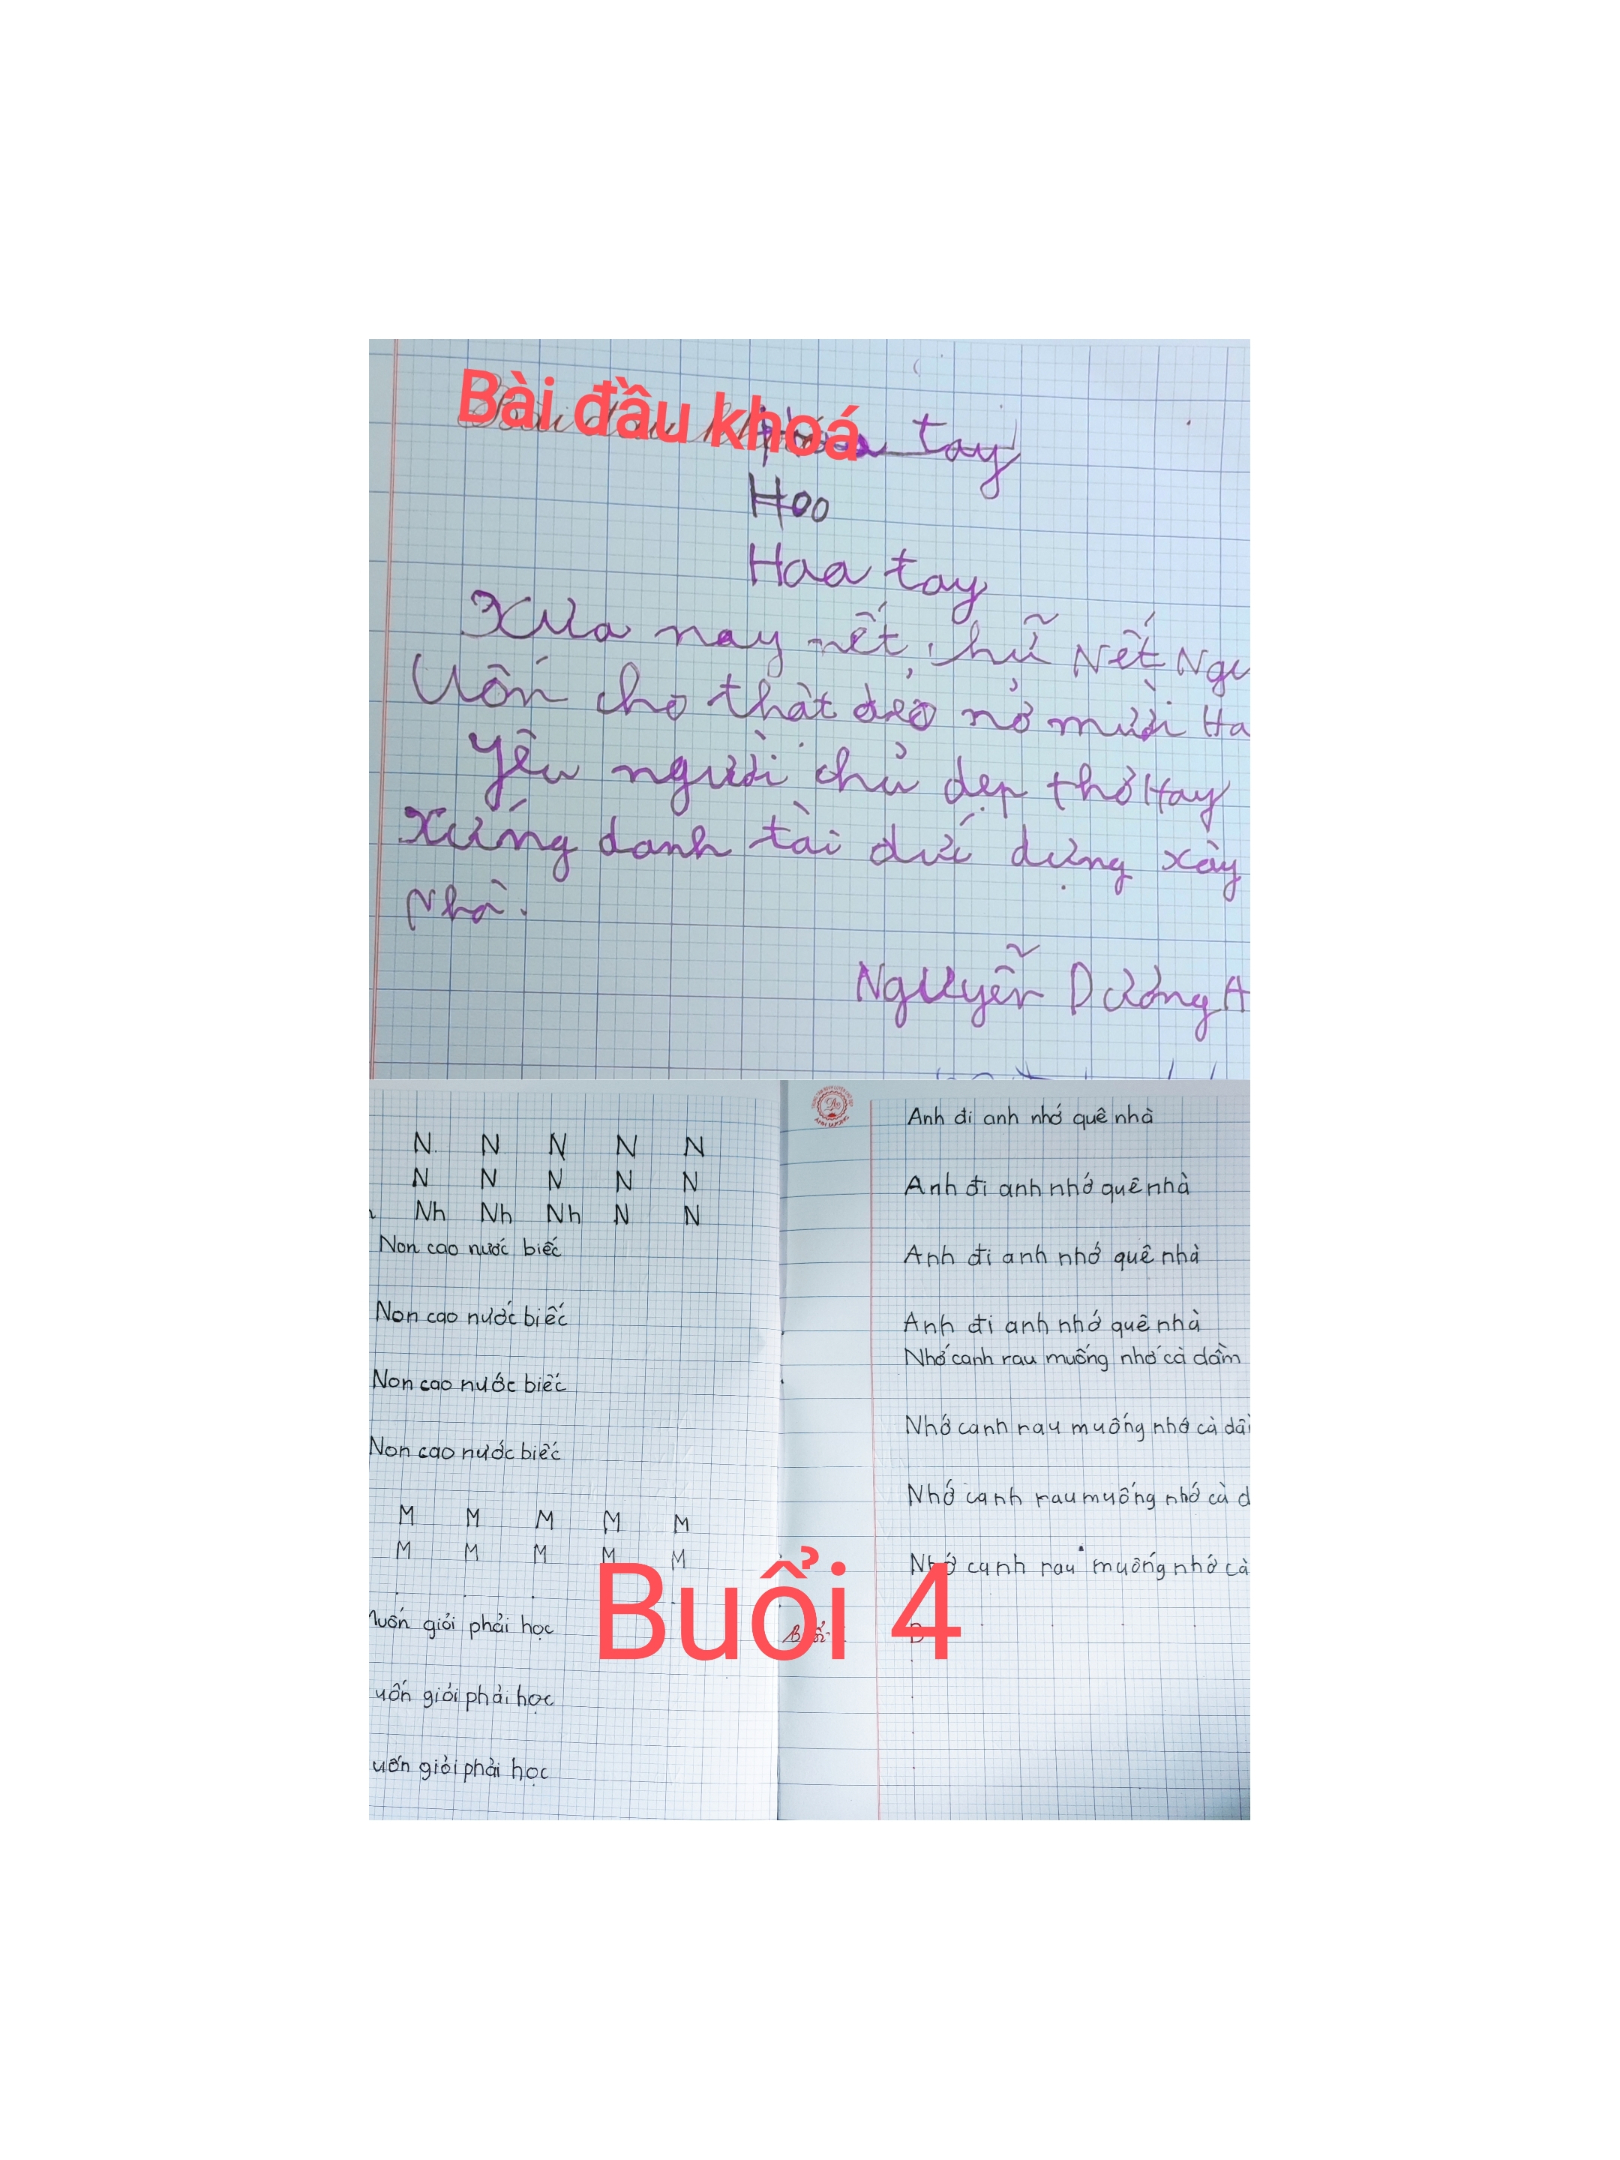 Bài đầu khoá
tay
Hoo
Haa tay
Xưa nay nết chữ Nết Ngư
Uốn cho thật dẻo nở mười Ha
Yêu người chủ dẹp thở Hay
Xứng danh tài dức dựng xây
Nhà.
Nguyễn Dương A
N N N N N
N N N N N
Nh Nh Nh N N
Non cao nước biếc
Non cao nước biếc
Non cao nước biếc
Non cao nước biếc
M M M M M
M M M M M
Muốn giỏi phải học
uốn giỏi phải học
uốn giỏi phải học
Anh đi anh nhớ quê nhà
Anh đi anh nhớ quê nhà
Anh đi anh nhớ quê nhà
Anh đi anh nhớ quê nhà
Nhớ canh rau muống nhớ cà dầm
Nhớ canh rau muống nhớ cà dầ
Nhớ canh rau muống nhớ cà d
Nhớ canh rau muống nhớ cà
Buổi 4